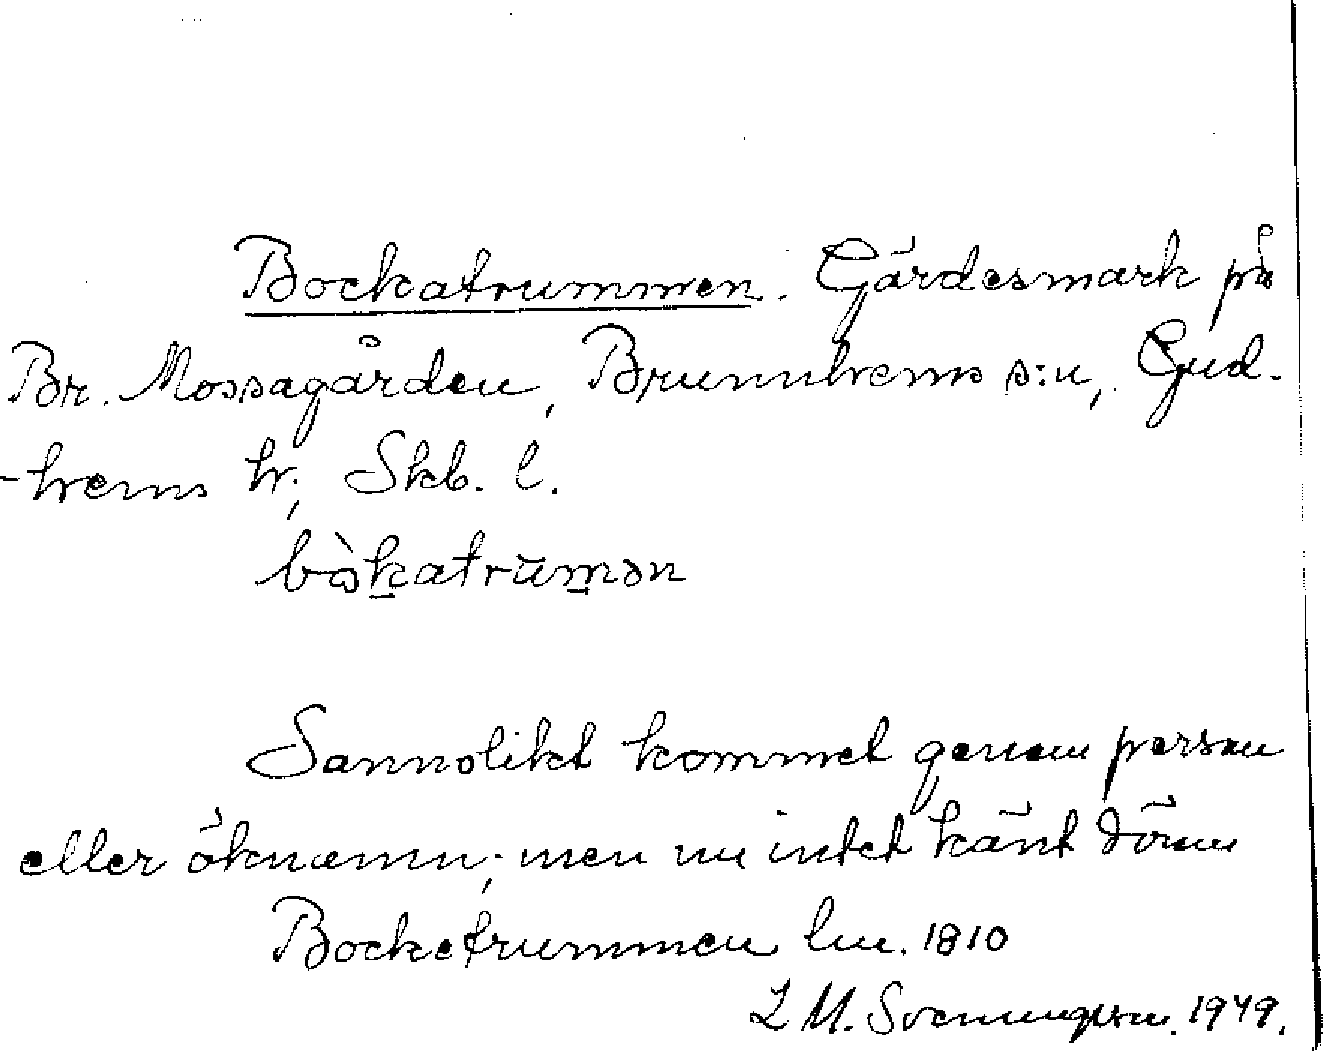 Bockatrummen. Gärdesmark på
Br. Mossagården, Brunnhems s:n, Gud-
-hems hr, Skb. l.
bòkatrumən
Sannolikt kommet genom person
eller öknamn; men nu intet känt därom
Bocketrummen lm. 1810
L M. Svenungsson. 1949.